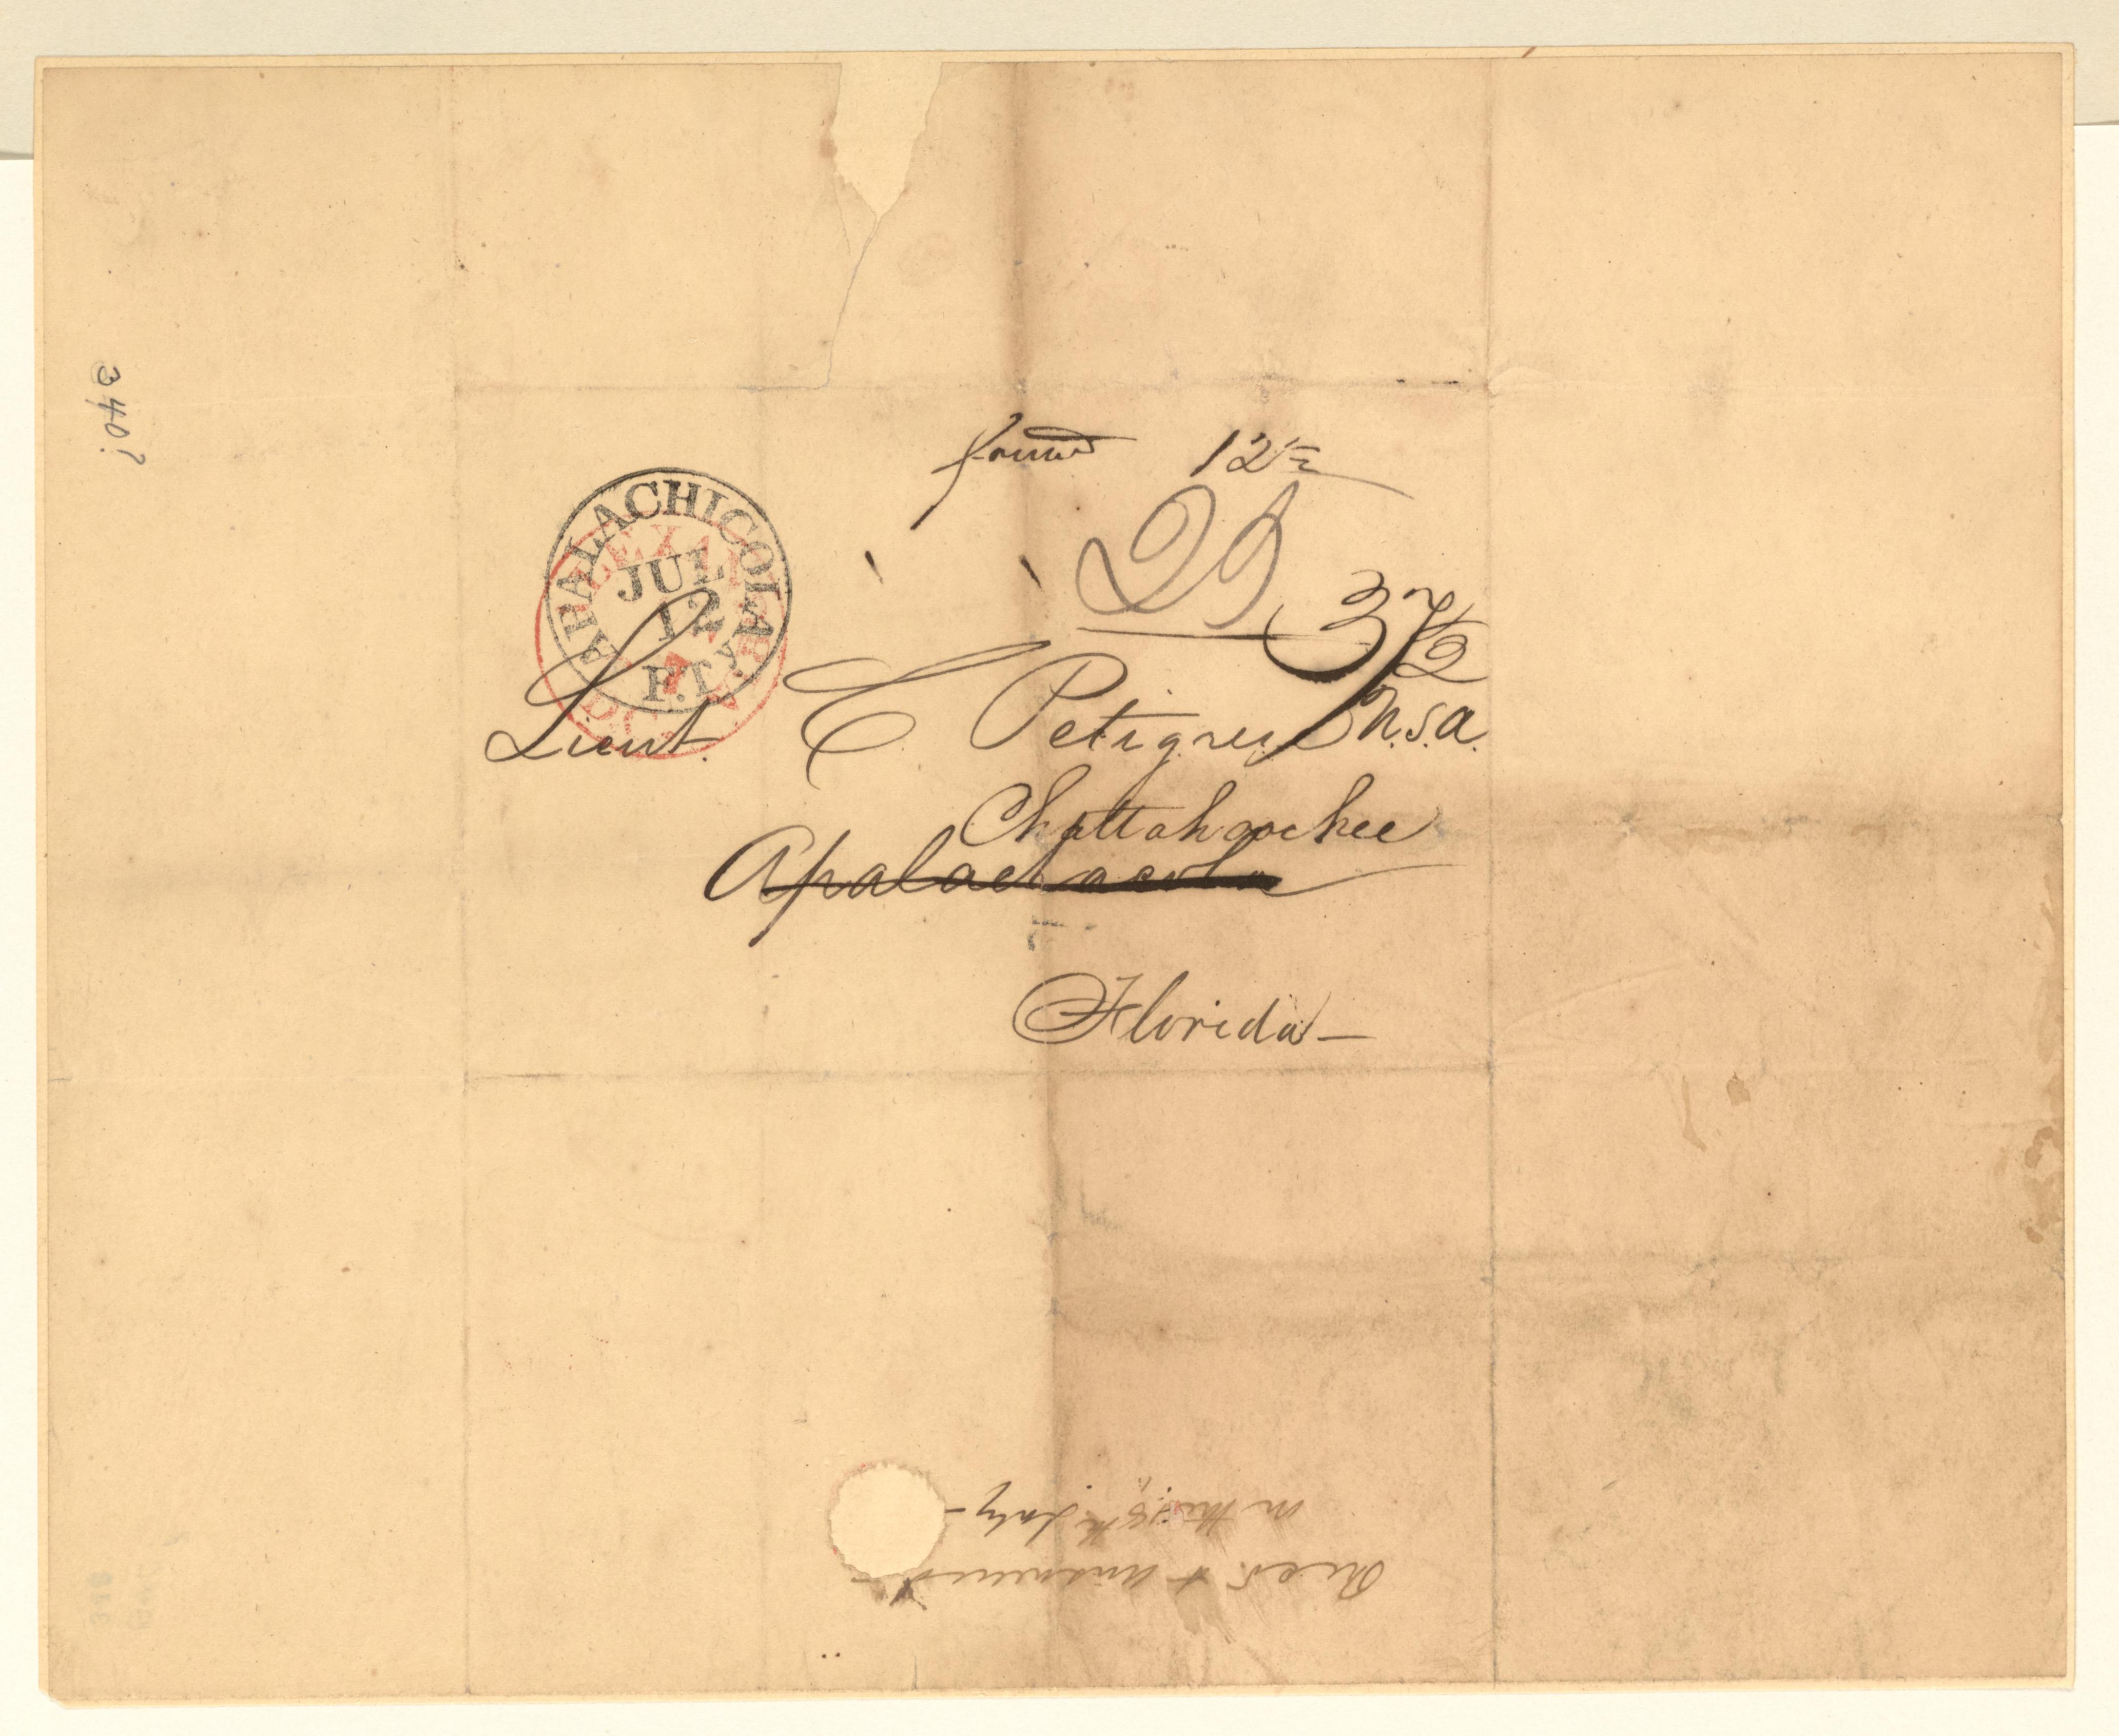 3407
forward 12½
25
37½
APALACHICOLA
JUL
12
F.Ty
ALEXANDRIA
D.C.
Lieut. C Petigru U.S.A.
Chattahoochee
Apalachacola
Florida
Recd. & answered
on the 18th July